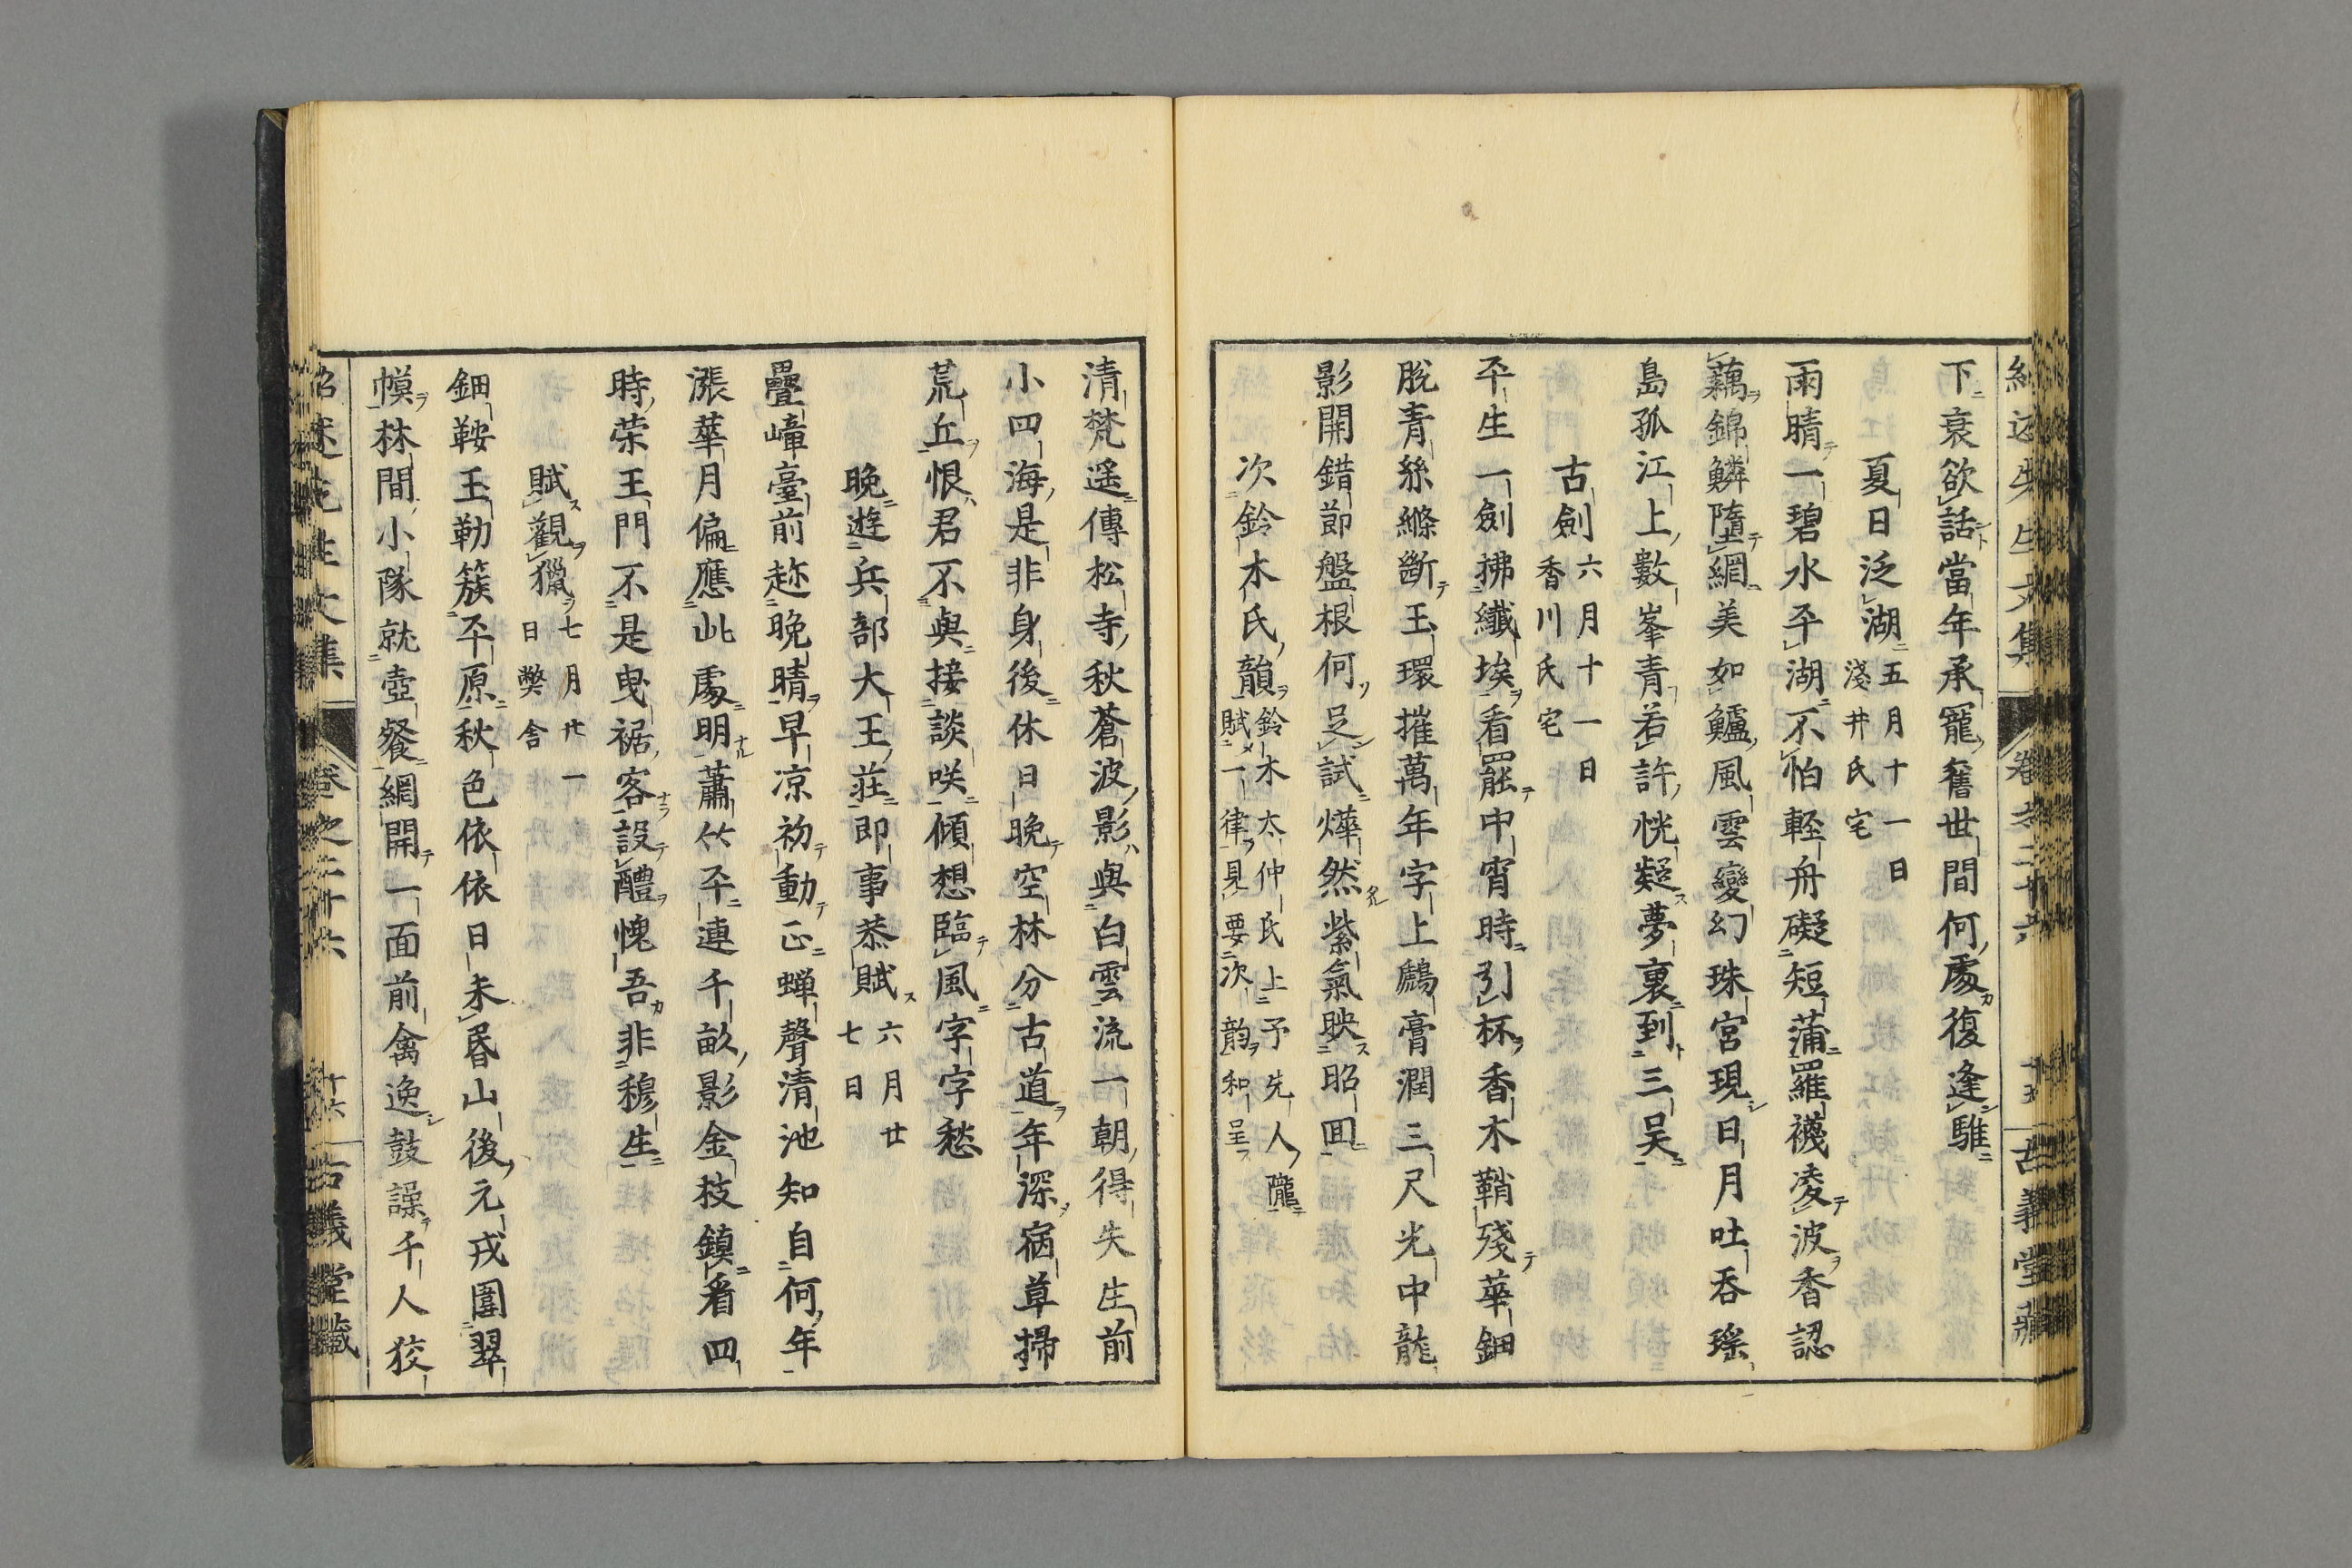 下衰欲話當年承寵舊世間何處復逢騅
夏日泛湖 五月十一日
淺井氏宅
雨晴一碧水平湖不怕輕舟礙短蒲羅襪凌波香認
藕錦鱗墮網美如鱸風雲變幻珠宮現日月吐吞瑤
島孤江上數峯青若許恍疑夢裏到三吴
古劍 六月十一日
香川氏宅
平生一劍拂纖埃看罷中宵時引杯香木鞘殘華鈿
脫青絲縧斷玉環摧萬年字上鷉膏潤三尺光中龍
影開錯節盤根何足試燁然紫氣映昭回
次鈴木氏韻 鈴木太仲氏上予先人隴
賦一律見要次韵和呈
清梵遥傳松寺秋蒼波影與白雲流一朝得失生前
小四海是非身後休日晚空林分古道年深宿草掃
荒丘恨君不與接談咲傾想臨風字字愁
晚遊兵部大王莊即事恭賦 六月廿
七日
疊嶂臺前趂晚晴早凉初動正蝉聲清池知自何年
漲華月偏應此處明蕭竹平連千畝影金枝鎮看四
時荣王門不是曳裾客設醴愧吾非穆生
賦觀獵 七月廿一
日弊舎
鈿鞍玉勒簇平原秋色依依日未昏山後元戎圍翠
幙林間小隊就壺餐網開一面前禽逸鼓譟千人狡
紹述先生文集 卷之二十六 十六 古義堂藏